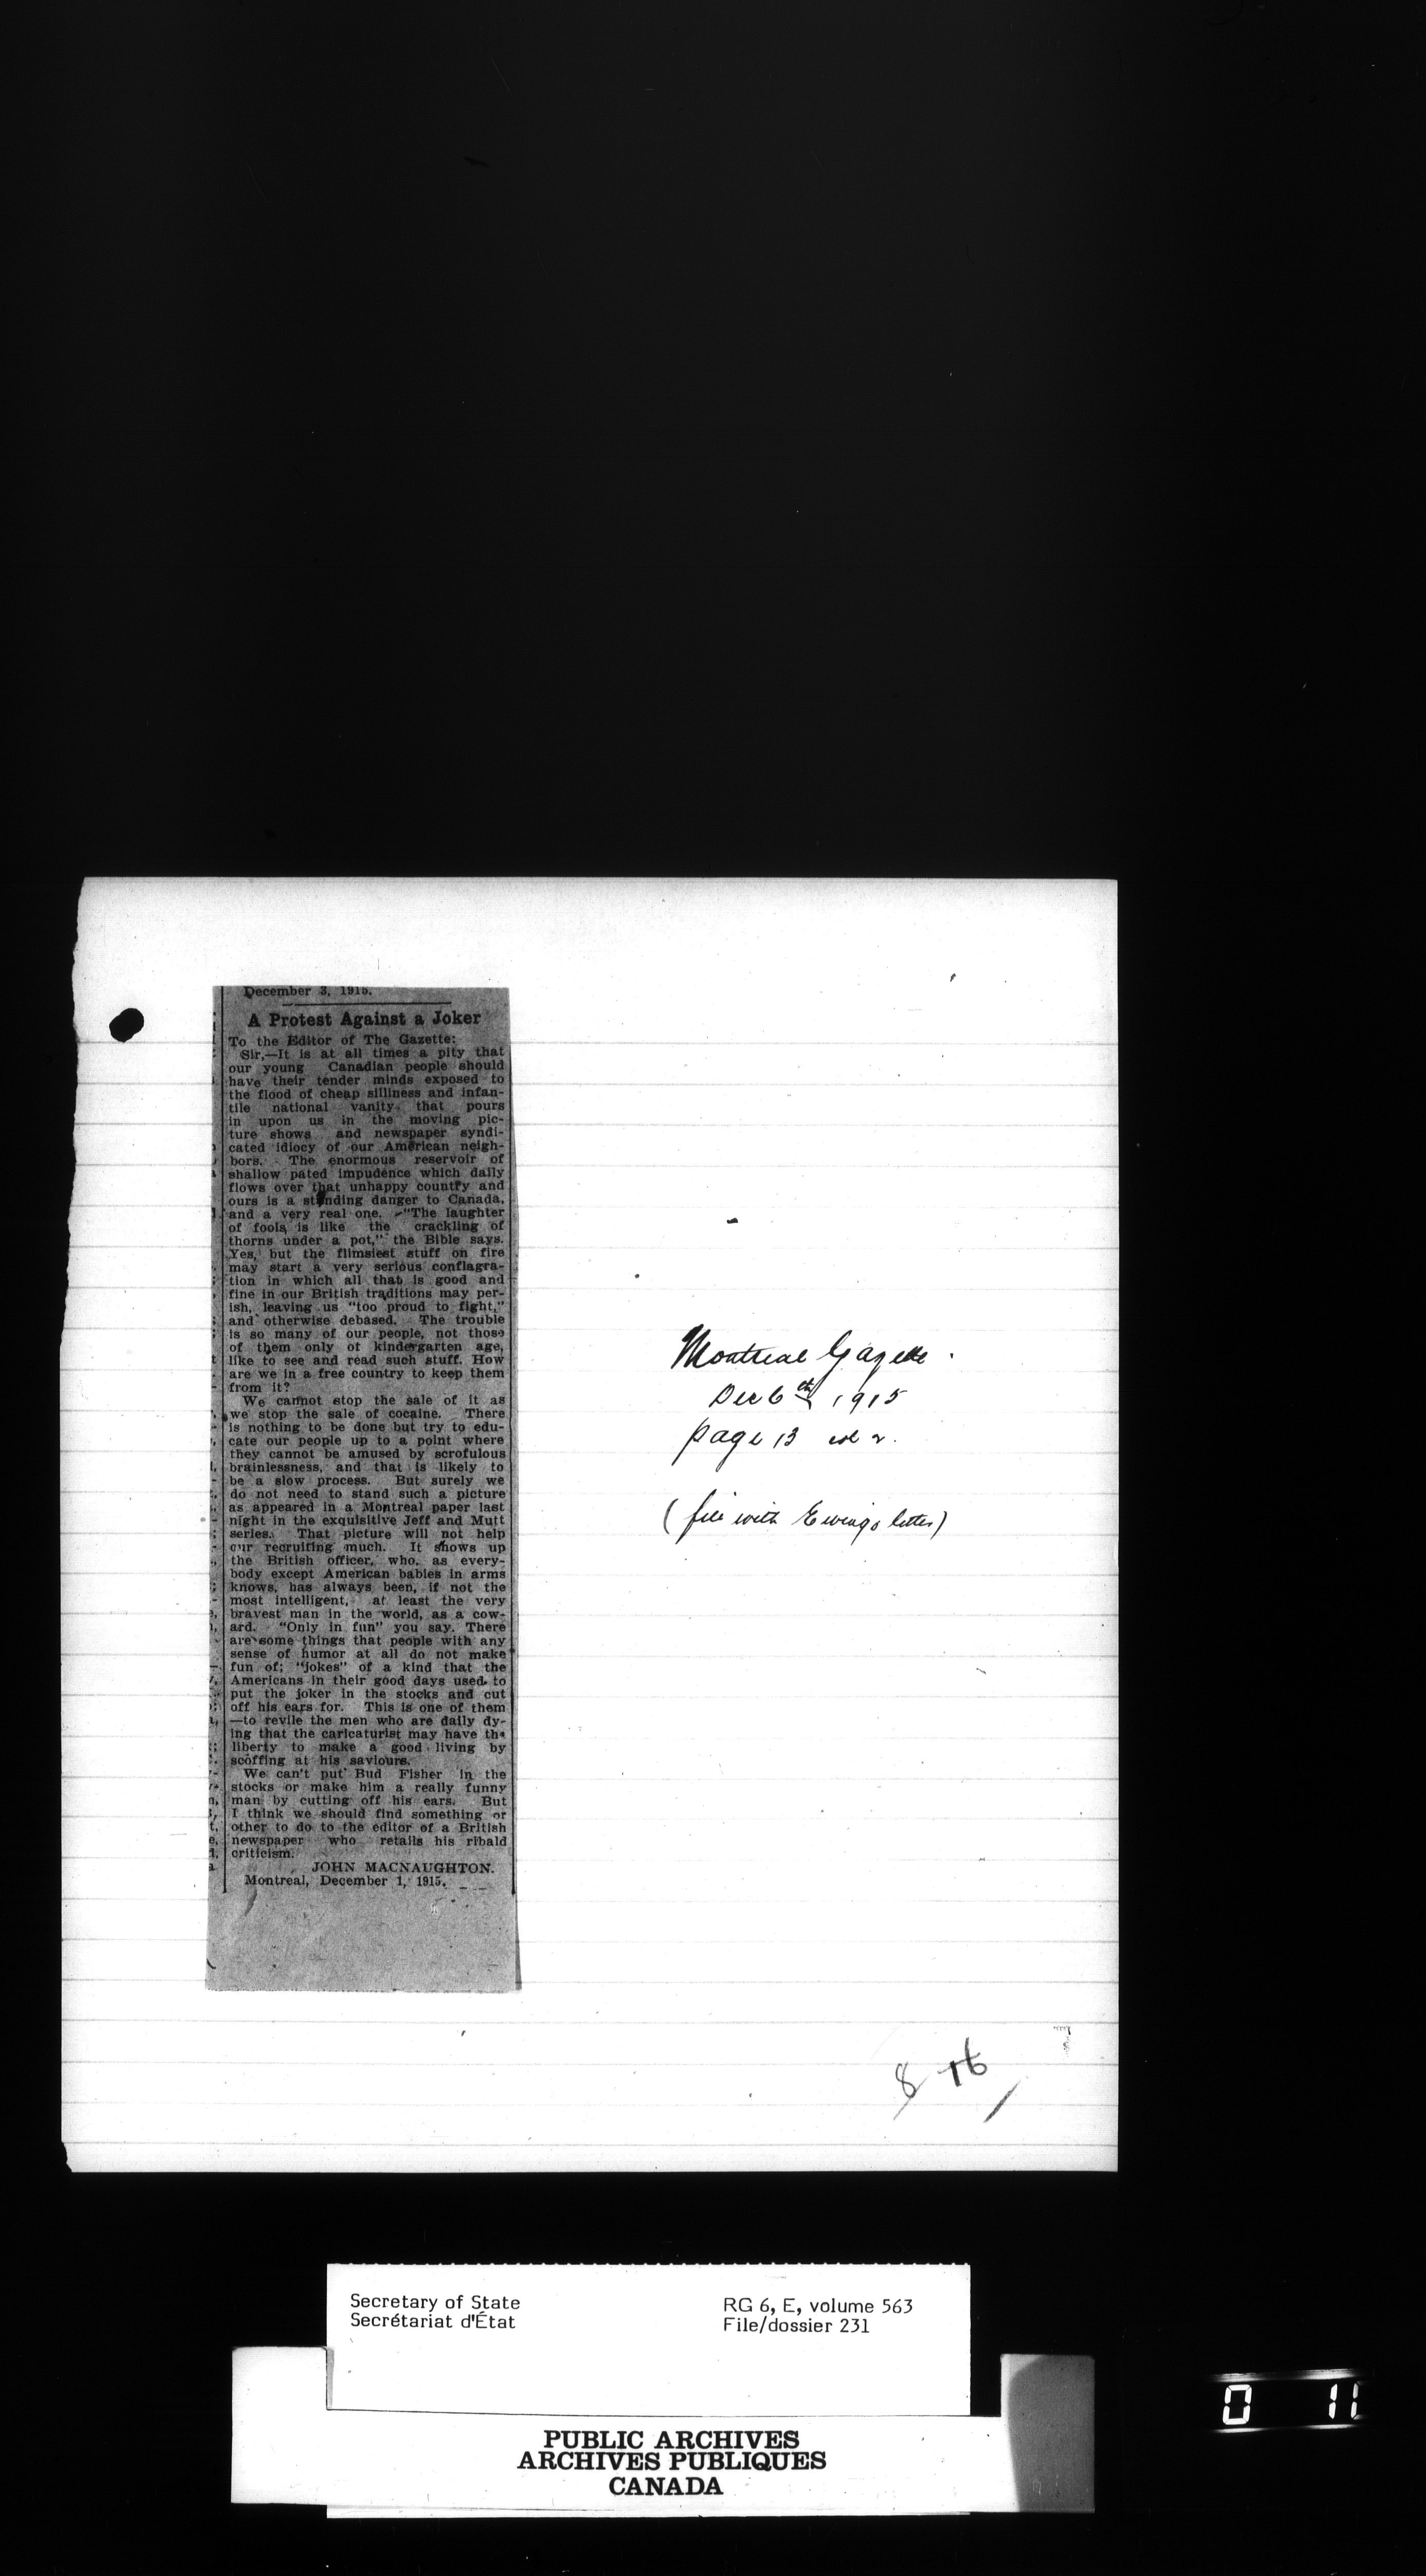 December 3, 1915.
A Protest Against a Joker
To the Editor of The Gazette:
Sir,—It is at all times a pity that
our young Canadian people should
have their tender minds exposed to
the flood of cheap silliness and infan-
tile national vanity that pours
in upon us in the moving pic-
ture shows and newspaper syndi-
cated idiocy of our American neigh-
bors. The enormous reservoir of
shallow pated impudence which daily
flows over that unhappy country and
ours is a standing danger to Canada,
and a very real one. "The laughter
of fools is like the crackling of
thorns under a pot," the Bible says.
Yes, but the flimsiest stuff on fire
may start a very serious conflagra-
tion in which all that is good and
fine in our British traditions may per-
ish, leaving us "too proud to fight,"
and otherwise debased. The trouble
is so many of our people, not those
of them only of kindergarten age,
like to see and read such stuff. How
are we in a free country to keep them
from it?
We cannot stop the sale of it as
we stop the sale of cocaine. There
is nothing to be done but try to edu-
cate our people up to a point where
they cannot be amused by scrofulous
brainlessness, and that is likely to
be a slow process. But surely we
do not need to stand such a picture
as appeared in a Montreal paper last
night in the exquisitive Jeff and Mutt
series. That picture will not help
our recruiting much. It shows up
the British officer, who, as every-
body except American babies in arms
knows, has always been, if not the
most intelligent, at least the very
bravest man in the world, as a cow-
ard. "Only in fun" you say. There
are some things that people with any
sense of humor at all do not make
fun of; "jokes" of a kind that the
Americans in their good days used to
put the joker in the stocks and cut
off his ears for. This is one of them
—to revile the men who are daily dy-
ing that the caricaturist may have the
liberty to make a good living by
scoffing at his saviours.
We can't put Bud Fisher in the
stocks or make him a really funny
man by cutting off his ears. But
I think we should find something or
other to do to the editor of a British
newspaper who retails his ribald
criticism.
JOHN MACNAUGHTON.
Montreal, December 1, 1915.
Montreal Gazette.
Dec 6th 1915
page 13 col 2.
(file with Ewing's letter)
Secretary of State
Secrétariat d'État
RG 6, E, volume 563
File/dossier 231
PUBLIC ARCHIVES
ARCHIVES PUBLIQUES
CANADA
0 11